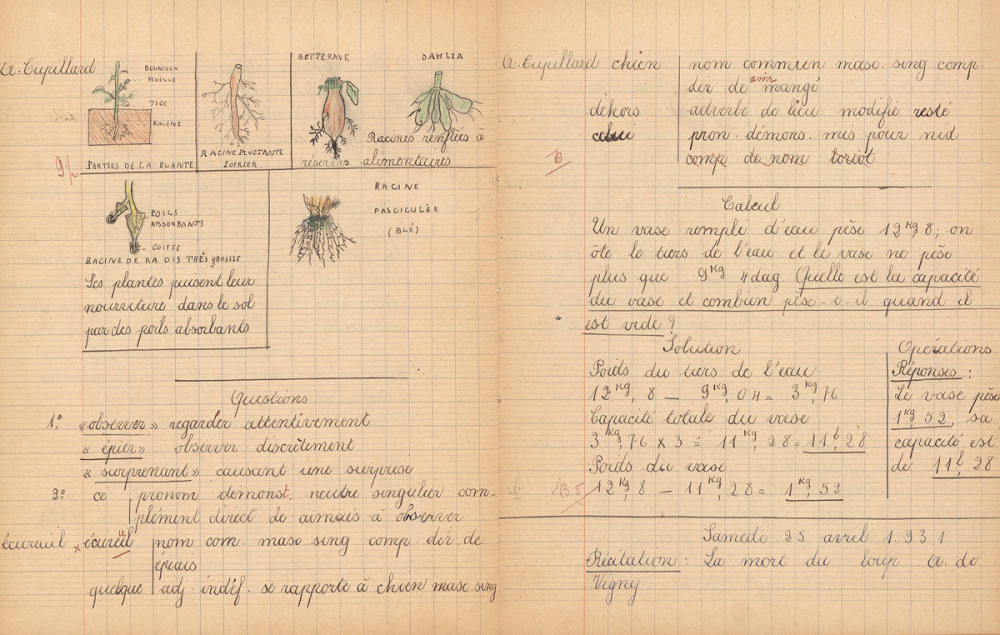 A. Cupillard
BOURGEON
FEUILLE
TIGE
RACINE
PARTIES DE LA PLANTE
RACINE PIVOTANTE
POIRIER
BETTERAVE
DAHLIA
Racines renflées à
réserves alimentaires
POILS
ABSORBANTS
COIFFE
RACINE DE RADIS TRÈS GROSSIE
Les plantes puisent leur
nourriture dans le sol
par des poils absorbants
RACINE
FASCICULÉE
(BLÉ)
Questions
1º «observer» regarder attentivement
«épier» observer discrètement
«surprenant» causant une surprise
2º ce pronom démonst. neutre singulier com-
plément direct de aimais à observer
écureuil x écureil nom com. masc sing comp. dir. de
épiais
quelque adj. indéf. se rapporte à chien masc. sing
A. Cupillard chien nom commun masc. sing comp.
dir de avoir mangé
dehors adverbe de lieu modifie resté
celui pron. démons. mis pour nid
comp de nom loriot
B
Calcul
Un vase rempli d'eau pèse 12 Kg, 8; on
ôte le tiers de l'eau et le vase ne pèse
plus que 9 Kg 4 dag Quelle est la capacité
du vase et combien pèse-t-il quand il
est vide?
Solution
Poids du tiers de l'eau
12 Kg, 8 — 9 Kg, 04 = 3 Kg, 76
Capacité totale du vase
3 Kg, 76 x 3 = 11 Kg, 28 = 11 l, 28
Poids du vase
12 Kg, 8 — 11 Kg, 28 = 1 Kg, 52
Opérations
Réponses :
Le vase pèse
1 Kg 52, sa
capacité est
de 11 l, 28
Samedi 25 avril 1.931
Récitation : La mort du loup A. de
Vigny